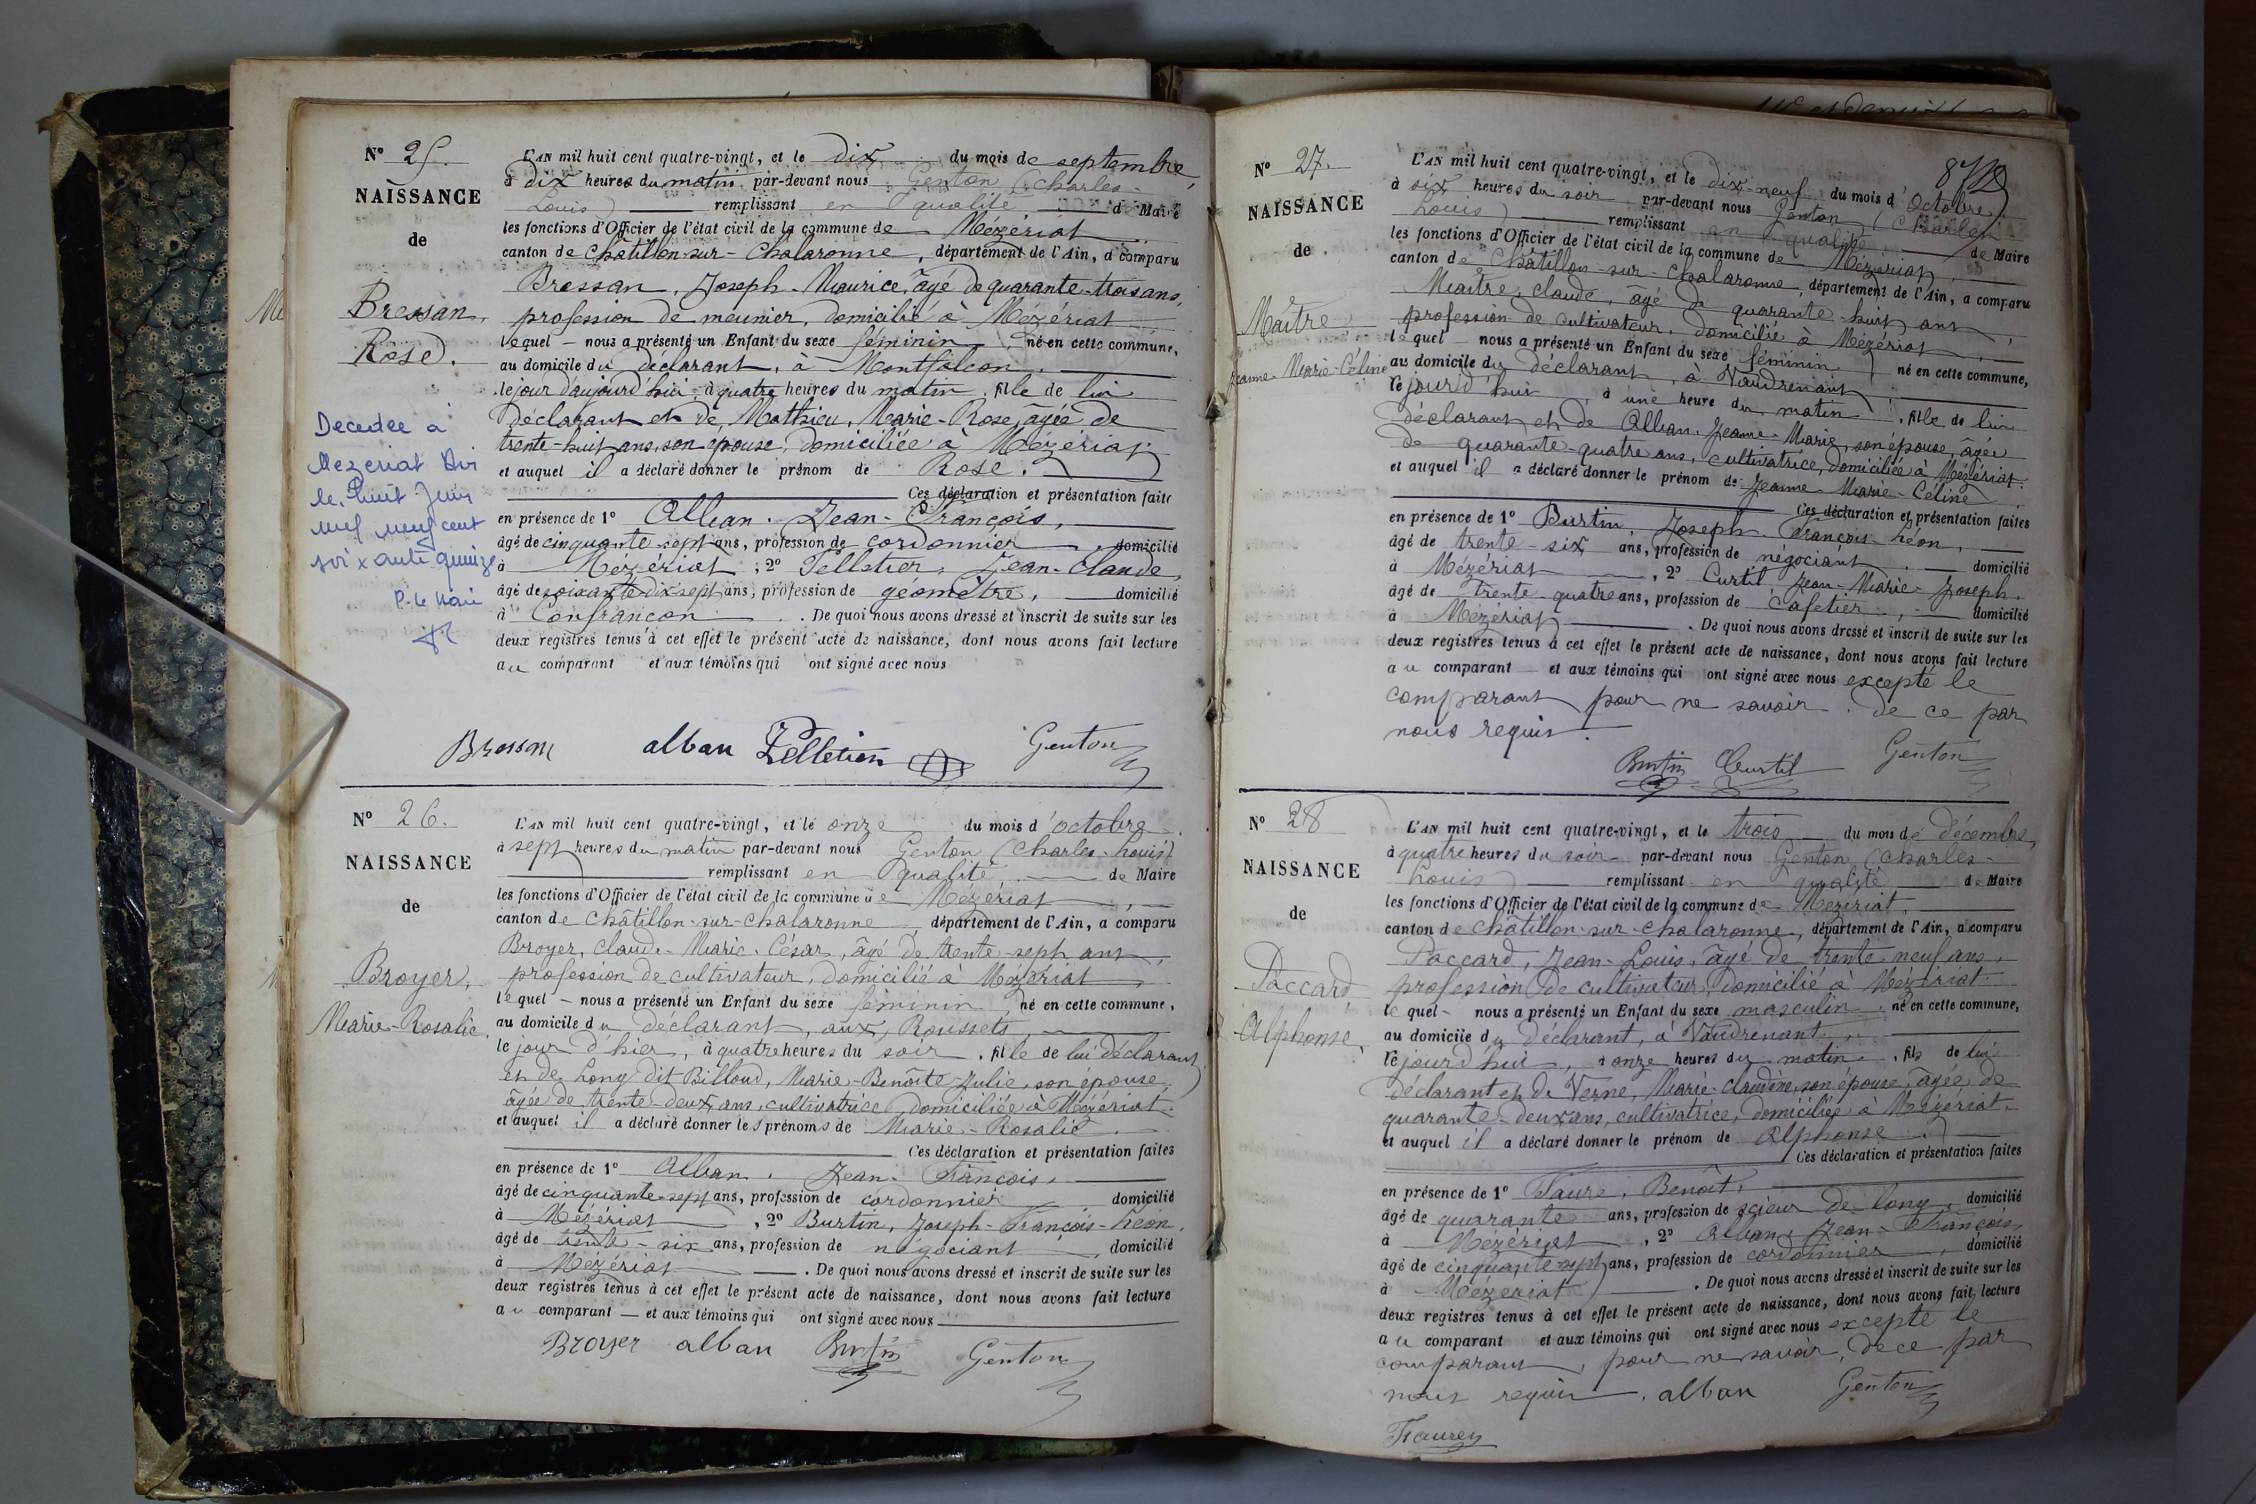 Nº 25.
NAISSANCE
de
Bressan,
Rose.
Decedee a
Mezeriat Ain
le huit Juin
mil neuf cent
soixante quinze
P. le Maire
L'AN mil huit cent quatre-vingt, et le dix du mois de septembre,
à dix heures du matin par-devant nous Genton (Charles-
Louis) remplissant en qualité de Maire
les fonctions d'Officier de l'état civil de la commune de Mézériat
canton de Châtillon-sur-Chalaronne, département de l'Ain, a comparu
Bressan, Joseph-Maurice, âgé de quarante-trois ans,
profession de meunier, domicilié à Mézériat
lequel nous a présenté un Enfant du sexe féminin, né en cette commune,
au domicile du déclarant, à Montfalcon.
le jour d'aujourd'hui, à quatre heures du matin, fille de lui
déclarant et de Mathieu, Marie-Rose, agée de
trente-huit ans, son épouse, domiciliée à Mézériat
et auquel il a déclaré donner le prénom de Rose.
Ces déclaration et présentation faite
en présence de 1º Alban, Jean-François,
âgé de cinquante-sept ans, profession de cordonnier, domicilié
à Mézériat ; 2º Pelletier, Jean-Claude,
âgé de soixante-dix-sept ans, profession de géomètre, domicilié
à Confrançon. De quoi nous avons dressé et inscrit de suite sur les
deux registres tenus à cet effet le présent acte de naissance, dont nous avons fait lecture
au comparant et aux témoins qui ont signé avec nous
Bressan alban Pelletier Genton
Nº 26.
NAISSANCE
de
Broyer,
Marie-Rosalie.
L'AN mil huit cent quatre-vingt, et le onze du mois d'octobre
à sept heures du matin par-devant nous Genton (Charles-Louis)
remplissant en qualité de Maire
les fonctions d'Officier de l'état civil de la commune de Mézériat,
canton de Châtillon-sur-Chalaronne, département de l'Ain, a comparu
Broyer, Claude-Marie-César, âgé de trente-sept ans,
profession de cultivateur, domicilié à Mézériat,
lequel nous a présenté un Enfant du sexe féminin né en cette commune,
au domicile du déclarant, aux Roussets,
le jour d'hier, à quatre heures du soir, fille de lui déclarant
et de Long dit Billoud, Marie-Benoîte-Julie, son épouse,
âgée de trente-deux ans, cultivatrice, domiciliée à Mézériat.
et auquel il a déclaré donner les prénoms de Marie-Rosalie.
Ces déclaration et présentation faites
en présence de 1º Alban, Jean-François,
âgé de cinquante-sept ans, profession de cordonnier domicilié
à Mézériat, 2º Burtin, Joseph-François-Léon,
âgé de trente-six ans, profession de négociant, domicilié
à Mézériat. De quoi nous avons dressé et inscrit de suite sur les
deux registres tenus à cet effet le présent acte de naissance, dont nous avons fait lecture
au comparant et aux témoins qui ont signé avec nous
Broyer alban Burtin Genton
Nº 27.
NAISSANCE
de
Maître
Jeanne-Marie-Céline
L'AN mil huit cent quatre-vingt, et le dix-neuf du mois d'Octobre
à six heures du soir par-devant nous Genton (Charles-
Louis) remplissant en qualité de Maire
les fonctions d'Officier de l'état civil de la commune de Mézériat
canton de Châtillon-sur-Chalaronne, département de l'Ain, a comparu
Maître, Claude, âgé de quarante-huit ans,
profession de cultivateur, domicilié à Mézériat,
lequel nous a présenté un Enfant du sexe féminin né en cette commune,
au domicile du déclarant, à Vaudrenant,
le jour d'hui, à une heure du matin, fille de lui
déclarant et de Alban, Jeanne-Marie, son épouse, âgée
de quarante-quatre ans, cultivatrice, domiciliée à Mézériat.
et auquel il a déclaré donner le prénom de Jeanne-Marie-Céline
Ces déclaration et présentation faites
en présence de 1º Burtin, Joseph-François-Léon,
âgé de trente-six ans, profession de négociant, domicilié
à Mézériat, 2º Curtil Jean-Marie-Joseph.
âgé de trente-quatre ans, profession de cafetier, domicilié
à Mézériat. De quoi nous avons dressé et inscrit de suite sur les
deux registres tenus à cet effet le présent acte de naissance, dont nous avons fait lecture
au comparant et aux témoins qui ont signé avec nous excepté le
comparant pour ne savoir, de ce par
nous requis.
Burtin Curtil Genton
Nº 28
NAISSANCE
de
Paccard
Alphonse,
L'AN mil huit cent quatre-vingt, et le trois du mois de décembre,
à quatre heures du soir par-devant nous Genton (Charles-
Louis) remplissant en qualité de Maire
les fonctions d'Officier de l'état civil de la commune de Mézériat,
canton de Châtillon-sur-Chalaronne, département de l'Ain, a comparu
Paccard, Jean-Louis, âgé de trente neuf ans,
profession de cultivateur, domicilié à Mézériat.
lequel nous a présenté un Enfant du sexe masculin, né en cette commune,
au domicile du déclarant, à Vaudrenant,
le jour d'hui, à onze heures du matin, fils de lui
déclarant et de Verne, Marie-Claudine, son épouse, âgée de
quarante-deux ans, cultivatrice, domiciliée à Mézériat.
et auquel il a déclaré donner le prénom de Alphonse.
Ces déclaration et présentation faites
en présence de 1º Faure, Benoît,
âgé de quarante ans, profession de scieur de long, domicilié
à Mézériat, 2º Alban, Jean-François,
âgé de cinquante-sept ans, profession de cordonnier, domicilié
à Mézériat. De quoi nous avons dressé et inscrit de suite sur les
deux registres tenus à cet effet le présent acte de naissance, dont nous avons fait lecture
au comparant et aux témoins qui ont signé avec nous excepté le
comparant, pour ne savoir, de ce par
nous requis. alban Genton